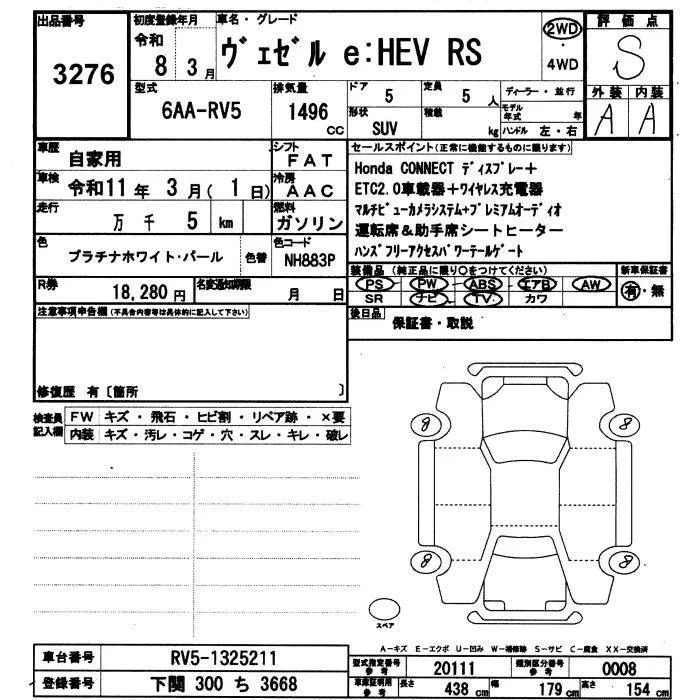 出品番号
3276
初度登録年月
令和 8 3月
車名・グレード
ヴェゼル e:HEV RS
2WD
・
4WD
評価点
S
外装 内装
A A
型式
6AA-RV5
排気量
1496 cc
ドア
5
定員
5 人
ディーラー・並行
モデル年式 年
形状
SUV
積載 kg
ハンドル 左・右
車歴
自家用
シフト
FAT
車検
令和11年 3月( 1日)
冷房
AAC
走行
万 千 5 km
燃料
ガソリン
色
プラチナホワイト・パール
色替
色コード
NH883P
R券
18,280円
名変通知期限
月 日
セールスポイント(正常に機能するものに限ります)
Honda CONNECT ディスプレー+
ETC2.0車載器+ワイヤレス充電器
マルチビューカメラシステム+プレミアムオーディオ
運転席&助手席シートヒーター
ハンズフリーアクセスパワーテールゲート
装備品(純正品に限り○をつけてください)
新車保証書
PS PW ABS エアB AW
有・無
SR ナビ TV カワ
後日品
保証書・取説
注意事項申告欄(不具合内容等は具体的に記入して下さい)
修復歴 有〔箇所 〕
検査員記入欄
FW キズ・飛石・ヒビ割・リペア跡・×要
内装 キズ・汚レ・コゲ・穴・スレ・キレ・破レ
8 8
8 8
スペア
A-キズ E-エクボ U-凹み W-補修跡 S-サビ C-腐食 XX-交換済
車台番号
RV5-1325211
登録番号
下関 300 ち 3668
型式指定番号 参考
20111
類別区分番号 参考
0008
車庫証明用 参考
長さ 438 cm
幅 179 cm
高さ 154 cm